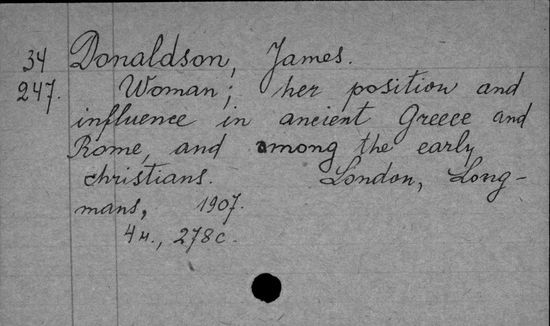 34 Donaldson, James.
247. Woman; her position and
influence in ancient Greece and
Rome, and among the early
christians. London, Long-
mans, 1907.
4н., 278с.